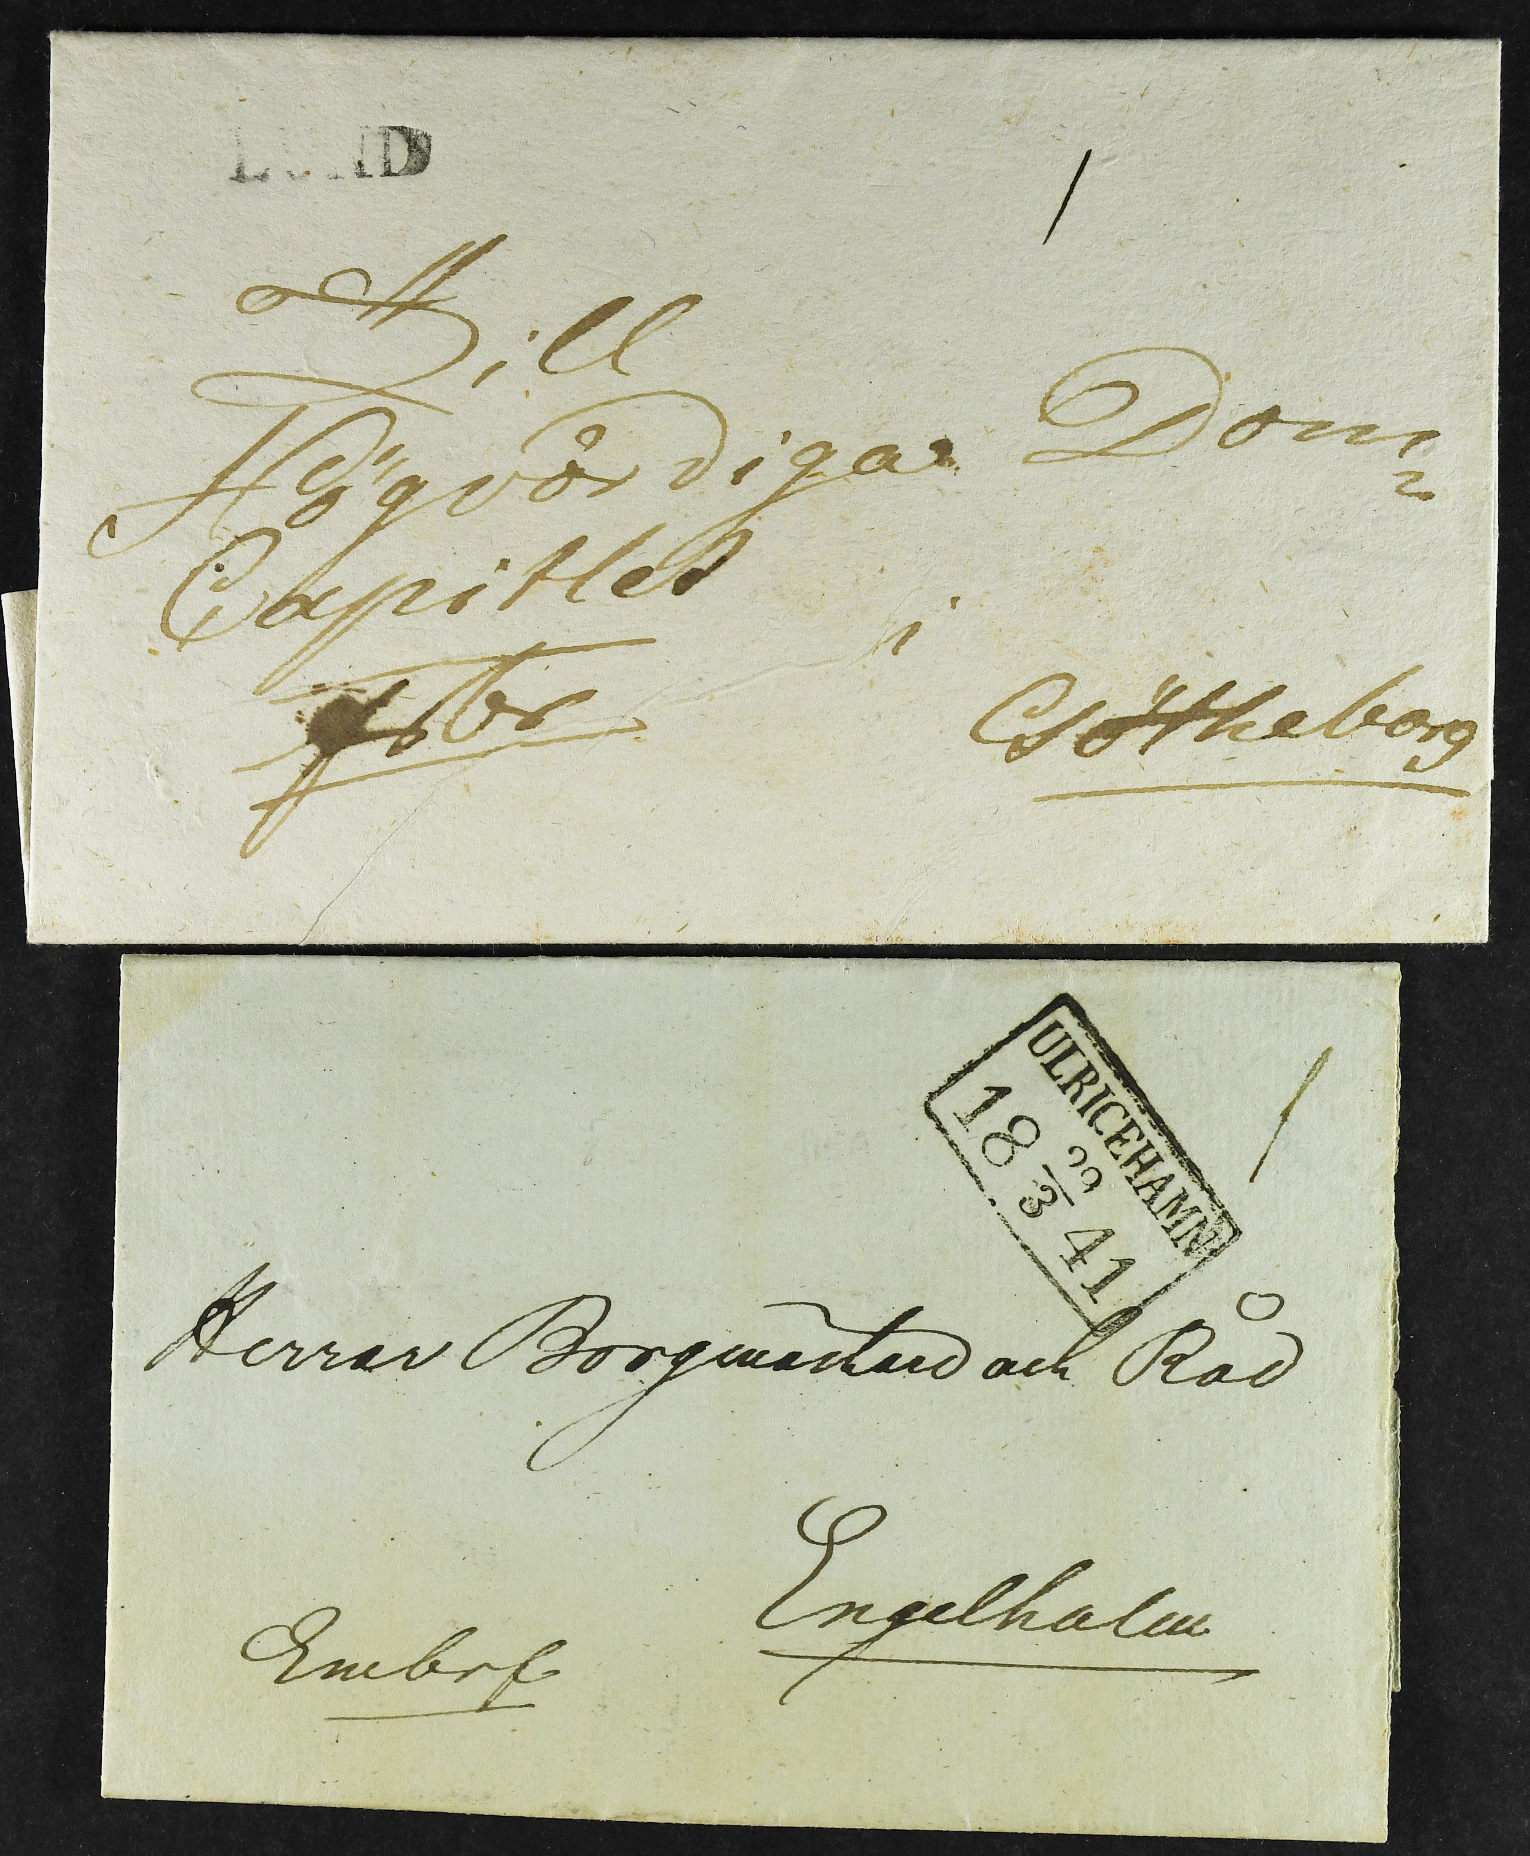 LUND
/
Till
Högvördiga Dom=
Capitlet
i
fsbr
Götheborg
ULRICEHAMN
18 22/3 41
/
Herrar Borgmästare och Råd
Engelholm
Embrf